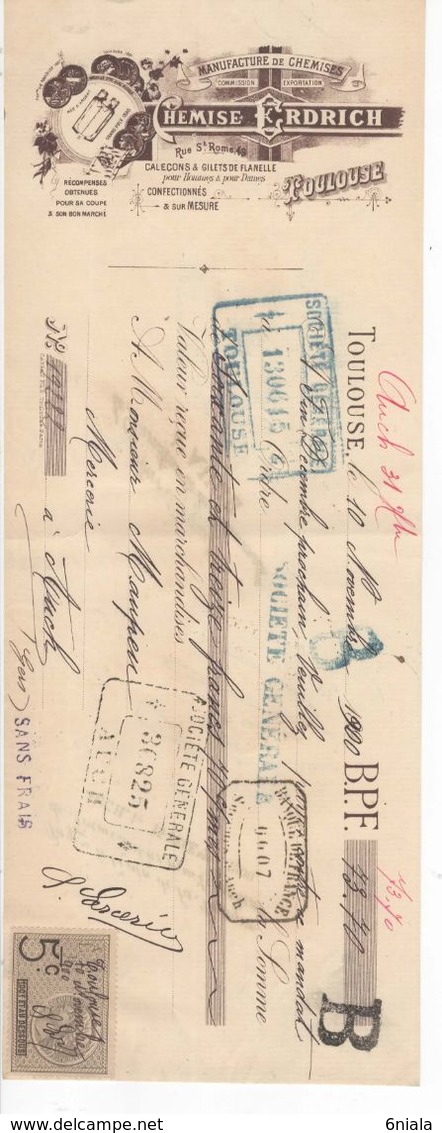 MANUFACTURE DE CHEMISES
COMMISSION EXPORTATION
CHEMISE ERDRICH
Rue St Rome, 49
TOULOUSE
CALEÇONS & GILETS DE FLANELLE
pour Hommes & pour Dames
CONFECTIONNÉS
& SUR MESURE
RÉCOMPENSES
OBTENUES
POUR SA COUPE
& SON BON MARCHÉ
Auch 31 Xbre
73,70
TOULOUSE, le 10 Novembre 1900 B.P.F. 73.70
Fin Décembre prochain, Veuillez payer contre ce mandat
à l'Ordre la Somme
de Soixante et treize francs
Valeur reçue en marchandises
A Monsieur
Mercerie
à Auch
(Gers)
SANS FRAIS
SOCIÉTÉ GÉNÉRALE
130615
TOULOUSE
SOCIÉTÉ GÉNÉRALE
B
SOCIÉTÉ GÉNÉRALE
30825
AUCH
BANQUE DE FRANCE
Auch
B
5c
Toulouse
Novembre